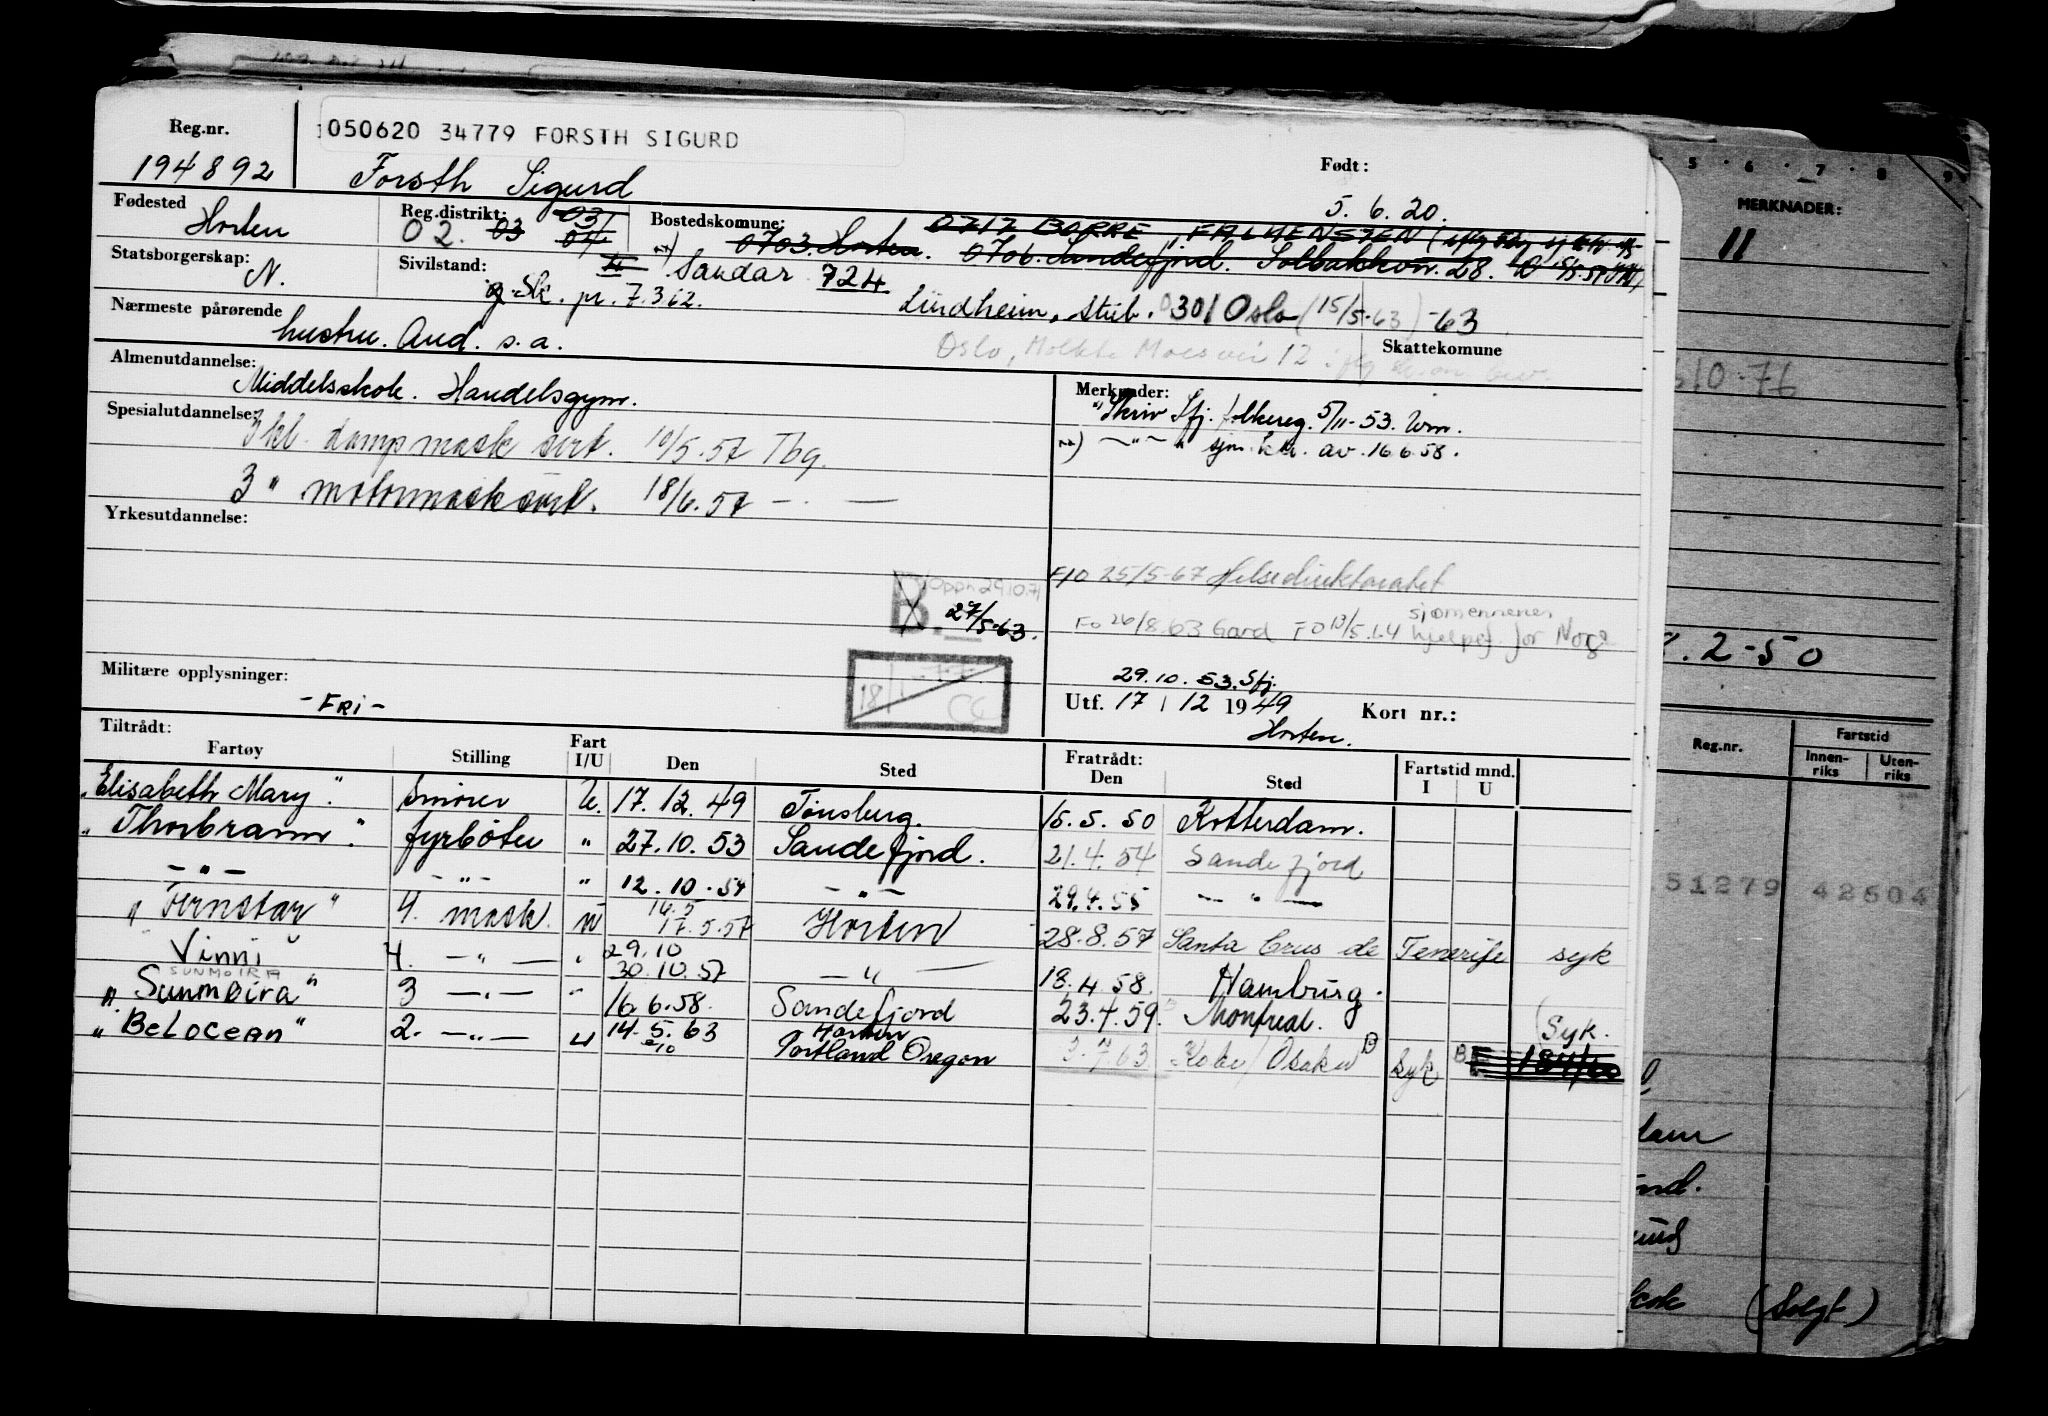 Reg.nr.
050620 34779 FORSTH SIGURD
194892
Forsth Sigurd
Født:
5.6.20.
Fødested
Horten
Reg.distrikt:
02. 03 03 04
Bostedskomune:
0717 BORRE, FALKENSTEN
0703 Horten. 0706 Sandefjord. Solbakkevn. 28.
Statsborgerskap:
N.
Sivilstand:
g. Sk. pr. 7.3.62.
Sandar 724
Lindheim, Stub. 0301 Oslo (15/5-63) -63
Nærmeste pårørende
hustru. Aud. s.a.
Oslo, Moltke Moes vei 12
Skattekomune
Almenutdannelse:
Middelsskole. Handelsgym.
Spesialutdannelse:
3 kl. damp mask sert. 10/5.57 Tbg.
3 " motormask sert. 18/6.57 - " -
Yrkesutdannelse:
Merknader:
Skriv Sfj. folkereg. 5/11-53.
av 16.6.58.
B. 27/5-63.
Oppn 29.10.71
F/O 25/5-67 Helsedirektoratet
Fo 26/8.63 Gard FO 13/5.64 sjømennenes
hjelpef. for Norge
Militære opplysninger:
- FRI -
29.10.53. Sfj.
Utf. 17 / 12 1949
Horten.
Kort nr.:
Tiltrådt:
Fartøy Stilling Fart I/U Den Sted
Fratrådt: Den Sted Fartstid mnd. I U
"Elisabeth Mary". Smører U. 17.12.49 Tønsberg. 15.5.50 Rotterdam.
"Thorbrann". fyrbøter " 27.10.53 Sandefjord. 21.4.54 Sandefjord
- " - - " - " 12.10.54 - " - 29.4.55 - " -
"Fernstar" 4. mask. U 16.5 17.5.57 Horten 28.8.57 Santa Crus de Tenerife syk
"Vinni" 4. - " - " 29.10 30.10.57 - " - 18.4.58. Hamburg.
SUNMOIRA
"Sunmoira" 3 - " - " 16.6.58. Sandefjord 23.4.59. Montreal. (Syk.
"BELOCEAN" 2. - " - U 14.5.63 Horten
Portland Oregon 3.7.63 Kobe/Osaka Syk
MERKNADER:
5 6 7 8 9
11
10-76
2-50
Reg.nr.
Fartstid
Innenriks
Utenriks
51279 42504
(Solgt)